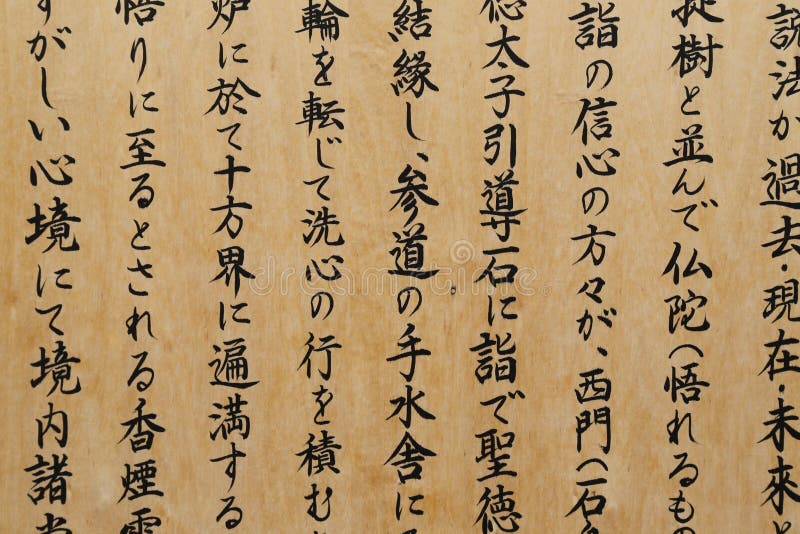 説法が過去・現在・未来と
提樹と並んで仏陀(悟れるもの
詣の信心の方々が、西門(石
徳太子引導石に詣で聖徳
結縁し、参道の手水舎に
輪を転じて洗心の行を積む
炉に於て十方界に遍満する
悟りに至るとされる香煙
すがしい心境にて境内諸堂